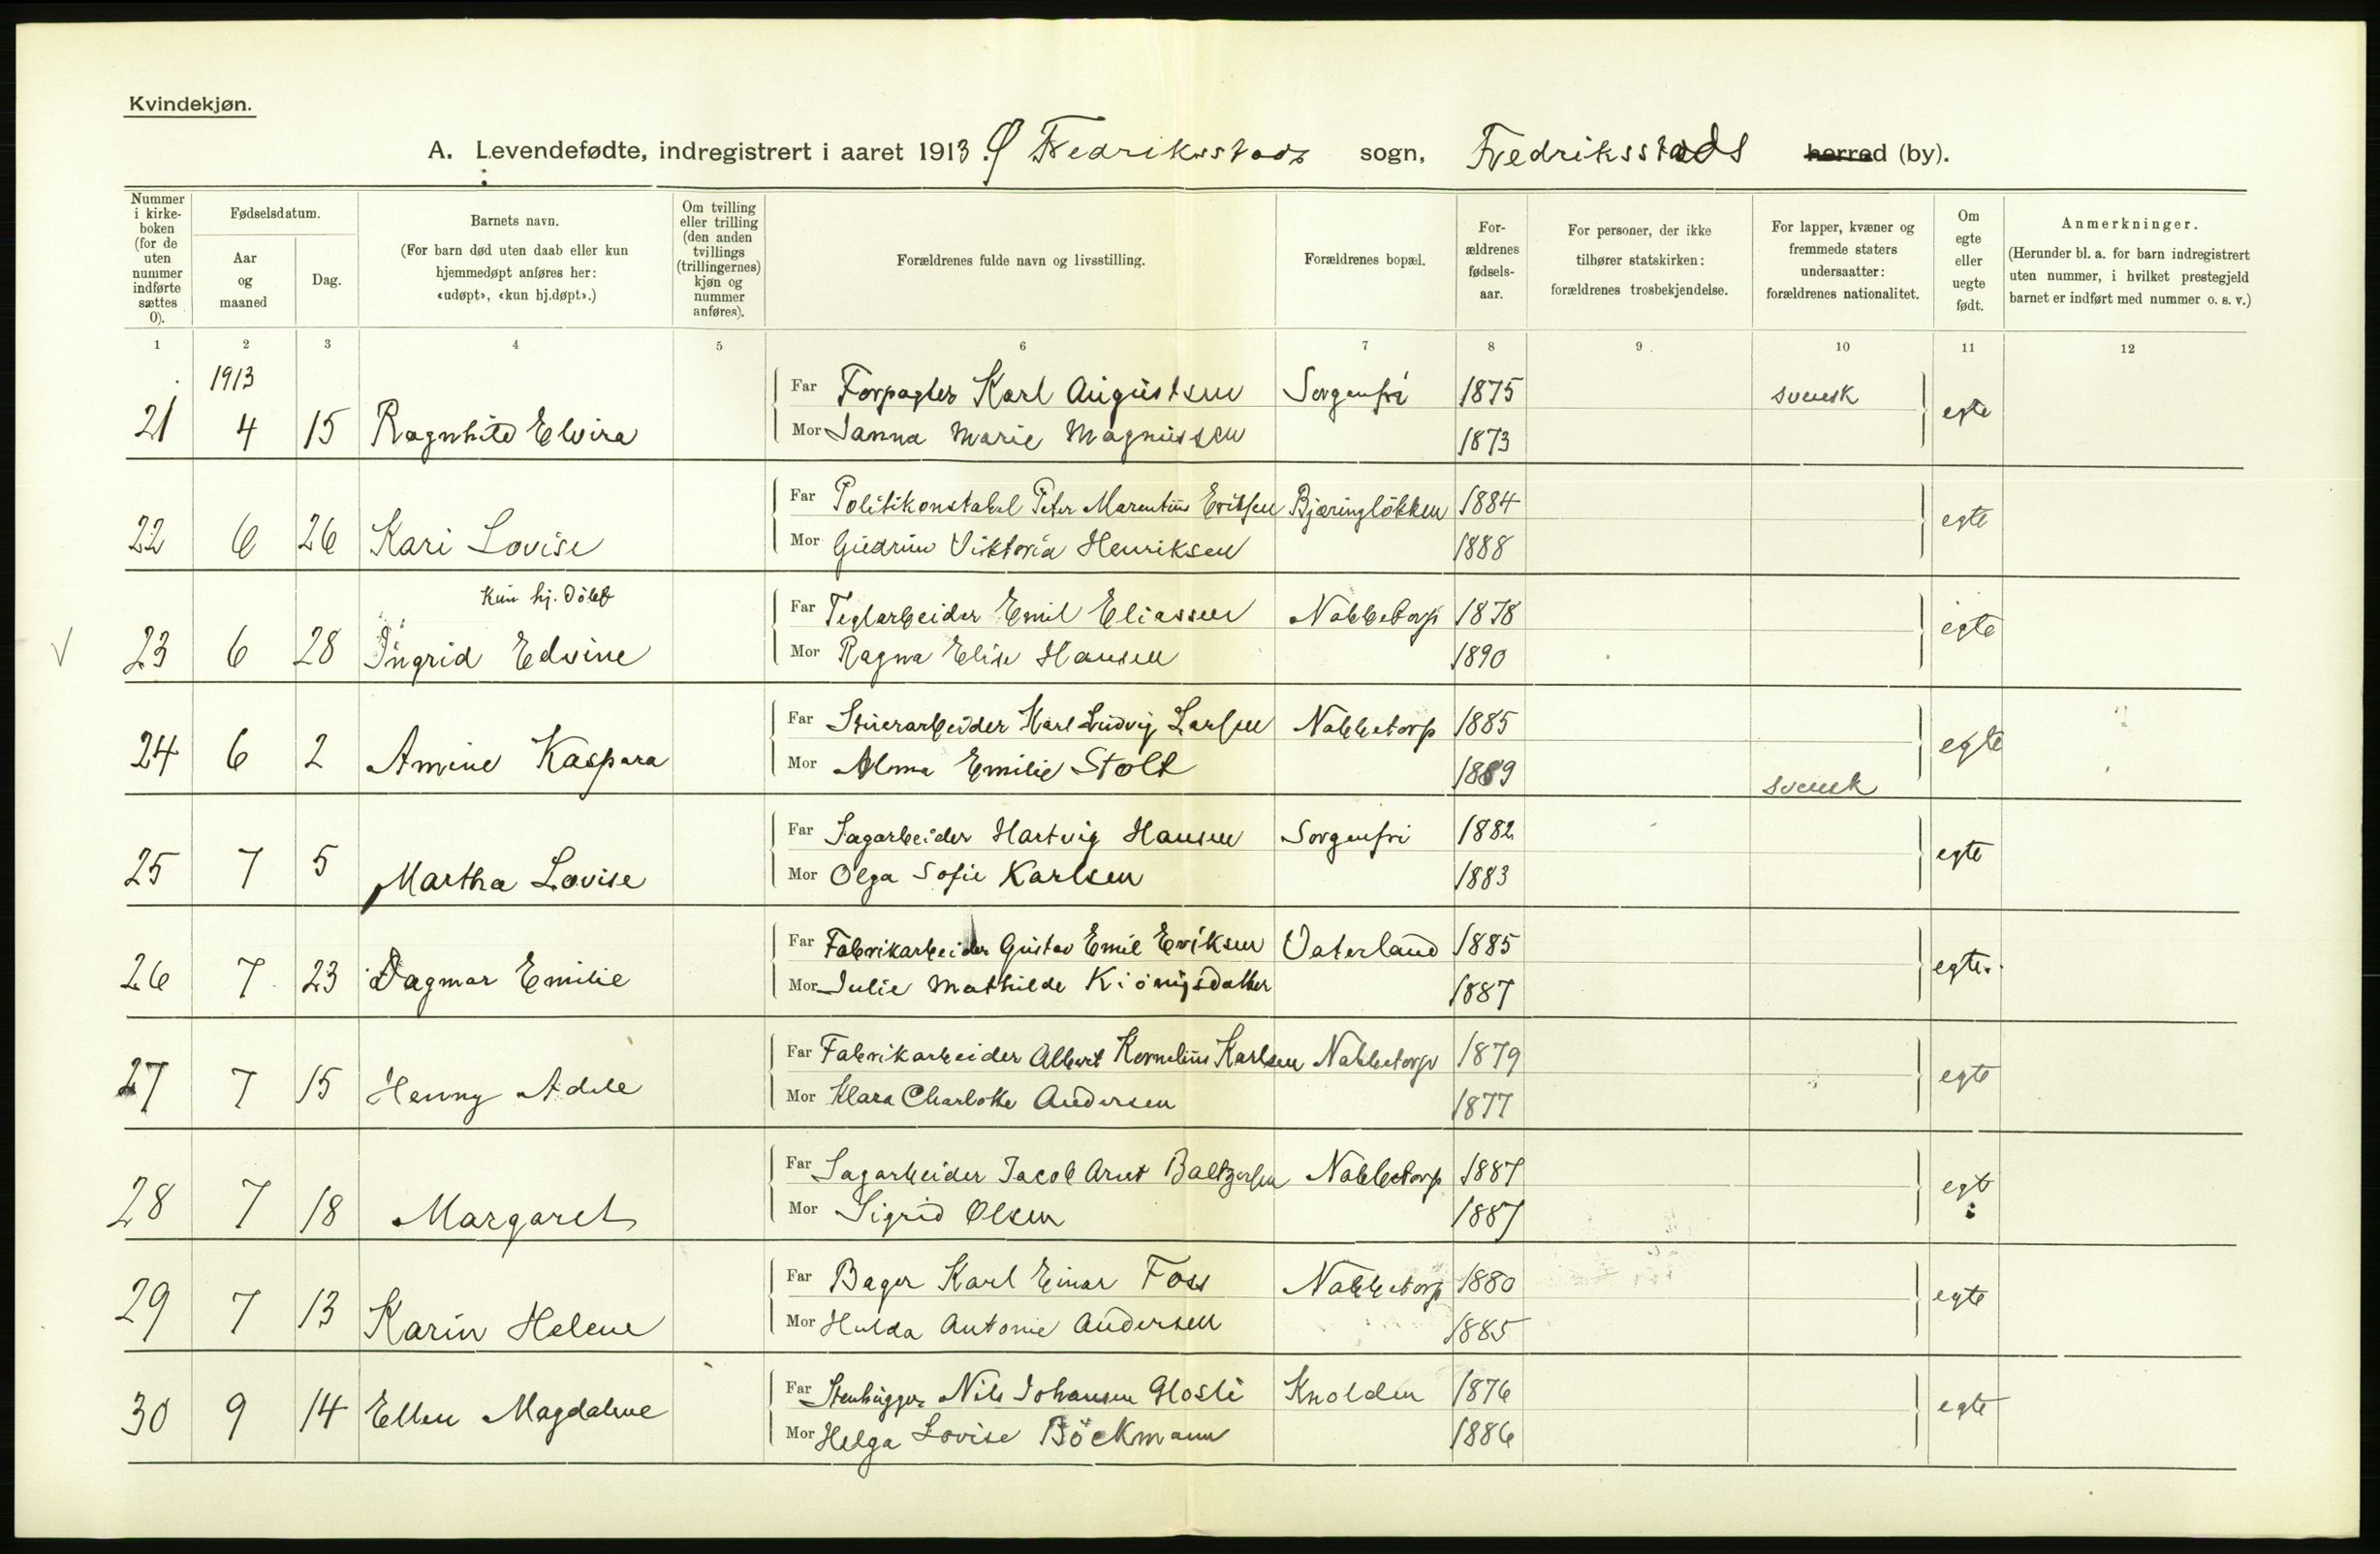 Kvindekjøn.
A. Levendefødte, indregistrert i aaret 1913. Ø Fredriksstads sogn, Fredriksstads herred (by).
Nummer i kirkeboken (for de uten nummer indførte sættes 0).
Fødselsdatum.
Aar og maaned
Dag.
Barnets navn.
(For barn død uten daab eller kun hjemmedøpt anføres her: «udøpt», «kun hj.døpt».)
Om tvilling eller trilling (den anden tvillings (trillingernes) kjøn og nummer anføres).
Forældrenes fulde navn og livsstilling.
Forældrenes bopæl.
Forældrenes fødselsaar.
For personer, der ikke tilhører statskirken: forældrenes trosbekjendelse.
For lapper, kvæner og fremmede staters undersaatter: forældrenes nationalitet.
Om egte eller uegte født.
Anmerkninger.
(Herunder bl. a. for barn indregistrert uten nummer, i hvilket prestegjeld barnet er indført med nummer o. s. v.)
1 2 3 4 5 6 7 8 9 10 11 12
1913
Far Forpagter Karl Augustsen Sorgenfri 1875 svensk
21 4 15 Ragnhild Elvira egte
Mor Janna Marie Magnussen 1873
Far Politikonstabel Peter Marentius Eriksen Bjæringløkken 1884
22 6 26 Kari Lovise egte
Mor Gudrun Viktoria Henriksen 1888
kun hj. døbt
Far Teglarbeider Emil Eliassen Nabbetorp 1878
23 6 28 Ingrid Edvine egte
Mor Ragna Elise Hansen 1890
Far Stuerarbeider Karl Ludvig Larsen Nabbetorp 1885
24 6 2 Amine Kaspara egte
Mor Alma Emilie Stolt 1889 svensk
Far Sagarbeider Hartvig Hansen Sorgenfri 1882
25 7 5 Martha Lovise egte
Mor Olga Sofie Karlsen 1883
Far Fabrikarbeider Gustav Emil Eriksen Vaterland 1885
26 7 23 Dagmar Emilie egte.
Mor Julie Mathilde 1887
Far Fabrikarbeider Albert Kornelius Karlsen Nabbetorp 1879
27 7 15 Henny Adele egte
Mor Klara Charlotte Andersen 1877
Far Sagarbeider Jacob Arnt Baltzersen Nabbetorp 1887
28 7 18 Margaret egt
Mor Sigrid Olsen 1887
Far Bager Karl Einar Foss Nabbetorp 1880
29 7 13 Karin Helene egte
Mor Hulda Antonie Andersen 1885
Far Stenhugger Nils Johansen Glosli Knolden 1876
30 9 14 Ellen Magdalene egte
Mor Helga Lovise Böckmann 1886